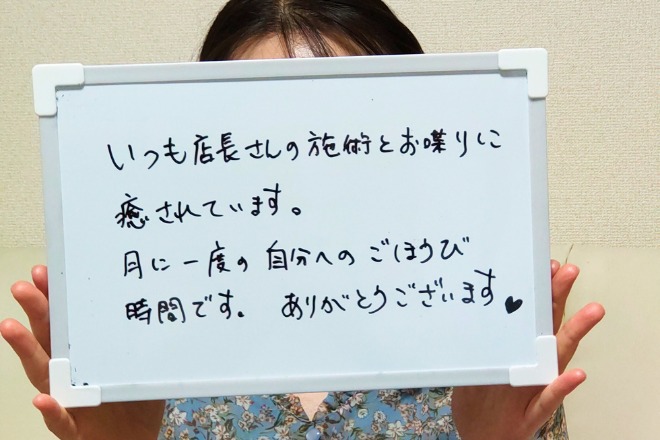 いつも店長さんの施術とお喋りに
癒されています。
月に一度の自分へのごほうび
時間です。 ありがとうございます♥